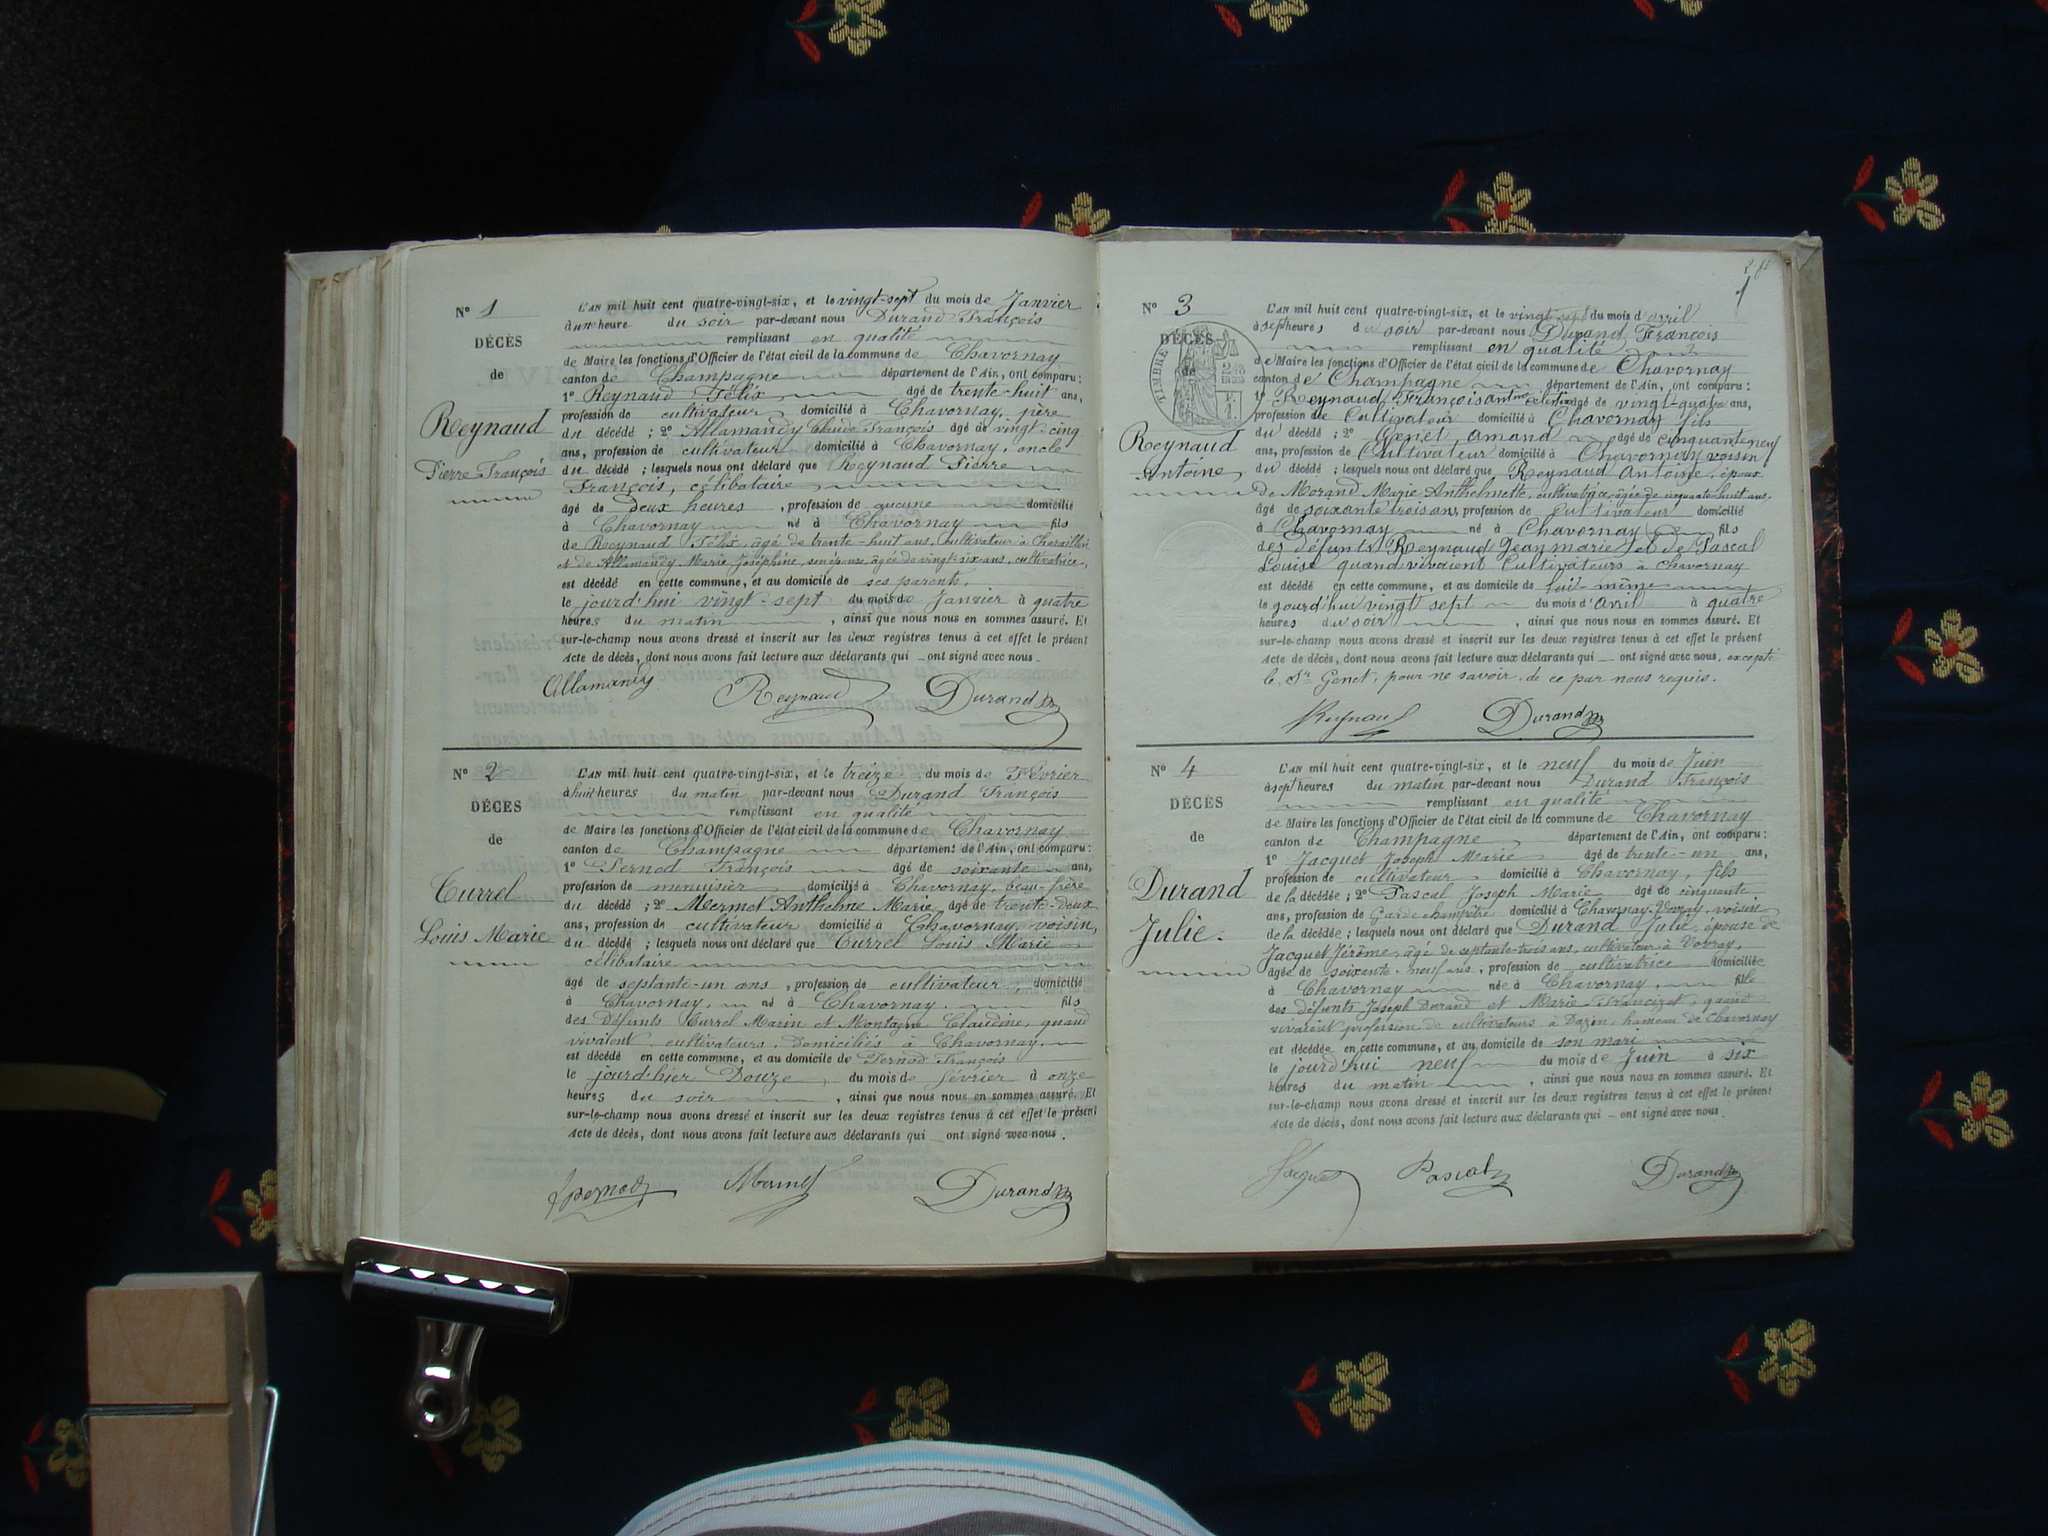 N° 1
DÉCÈS
de
Reynaud
Pierre François
L'AN mil huit cent quatre-vingt-six, et le vingt-sept du mois de Janvier
à une heure du soir par-devant nous Durand François
remplissant en qualité
de Maire les fonctions d'Officier de l'état civil de la commune de Chavornay
canton de Champagne département de l'Ain, ont comparu :
1° Reynaud Félix âgé de trente-huit ans,
profession de cultivateur domicilié à Chavornay, père
du décédé ; 2° Allamandy Claude François âgé de vingt-cinq
ans, profession de cultivateur domicilié à Chavornay, oncle
du décédé ; lesquels nous ont déclaré que Reynaud Pierre
François, célibataire
âgé de deux heures, profession de aucune domicilié
à Chavornay né à Chavornay fils
de Reynaud Félix, âgé de trente-huit ans, cultivateur à
et de Allamandy Marie Joséphine, son épouse âgée de vingt-six ans, cultivatrice,
est décédé en cette commune, et au domicile de ses parents,
le jourd'hui vingt-sept du mois de Janvier à quatre
heures du matin, ainsi que nous nous en sommes assuré. Et
sur-le-champ nous avons dressé et inscrit sur les deux registres tenus à cet effet le présent
Acte de décès, dont nous avons fait lecture aux déclarants qui ont signé avec nous.
Allamandy Reynaud Durand
N° 2
DÉCÈS
de
Currel
Louis Marie
L'AN mil huit cent quatre-vingt-six, et le treize du mois de Février
à huit heures du matin par-devant nous Durand François
remplissant en qualité
de Maire les fonctions d'Officier de l'état civil de la commune de Chavornay
canton de Champagne département de l'Ain, ont comparu :
1° Pernod François âgé de soixante ans,
profession de menuisier domicilié à Chavornay, beau-frère
du décédé ; 2° Mermet Anthelme Marie âgé de trente-deux
ans, profession de cultivateur domicilié à Chavornay, voisin,
du décédé ; lesquels nous ont déclaré que Currel Louis Marie
célibataire
âgé de septante-un ans, profession de cultivateur, domicilié
à Chavornay, né à Chavornay, fils
des défunts Currel Marin et Montagne Claudine, quand
vivaient cultivateurs, domiciliés à Chavornay,
est décédé en cette commune, et au domicile de Pernod François
le jourd'hier Douze, du mois de février à onze
heures du soir, ainsi que nous nous en sommes assuré. Et
sur-le-champ nous avons dressé et inscrit sur les deux registres tenus à cet effet le présent
Acte de décès, dont nous avons fait lecture aux déclarants qui ont signé avec nous.
Mermet Durand
N° 3
DÉCÈS
de
TIMBRE
Reynaud
Antoine
L'AN mil huit cent quatre-vingt-six, et le vingt sept du mois d'avril
à sept heures du soir par-devant nous Durand François
remplissant en qualité
de Maire les fonctions d'Officier de l'état civil de la commune de Chavornay
canton de Champagne département de l'Ain, ont comparu :
1° Reynaud François âgé de vingt-quatre ans,
profession de Cultivateur domicilié à Chavornay fils
du décédé ; 2° Genet Amand âgé de cinquante neuf
ans, profession de Cultivateur domicilié à Chavornay voisin
du décédé ; lesquels nous ont déclaré que Reynaud Antoine, époux
de Morand Marie Anthelmette, cultivatrice, âgée de cinquante huit ans.
âgé de soixante trois ans, profession de Cultivateur domicilié
à Chavornay né à Chavornay fils
des défunts Reynaud Jean marie et de Pascal
Louise quand vivaient Cultivateurs à Chavornay
est décédé en cette commune, et au domicile de lui-même
le jourd'hui vingt sept du mois d'avril à quatre
heures du soir, ainsi que nous nous en sommes assuré. Et
sur-le-champ nous avons dressé et inscrit sur les deux registres tenus à cet effet le présent
Acte de décès, dont nous avons fait lecture aux déclarants qui ont signé avec nous, excepté
le Sr Genet, pour ne savoir, de ce par nous requis.
Reynaud Durand
N° 4
DÉCÈS
de
Durand
Julie.
L'AN mil huit cent quatre-vingt-six, et le neuf du mois de Juin
à sept heures du matin par-devant nous Durand François
remplissant en qualité
de Maire les fonctions d'Officier de l'état civil de la commune de Chavornay
canton de Champagne département de l'Ain, ont comparu :
1° Jacquet Joseph Marie âgé de trente-un ans,
profession de cultivateur domicilié à Chavornay, fils
de la décédée ; 2° Pascal Joseph Marie âgé de cinquante
ans, profession de Garde champêtre domicilié à Chavornay-Vovray, voisin
de la décédée ; lesquels nous ont déclaré que Durand Julie, épouse de
Jacquet Jérôme, âgé de septante-trois ans, cultivateur à Vovray,
âgée de soixante-neuf ans, profession de cultivatrice domiciliée
à Chavornay née à Chavornay, fille
des défunts Joseph Durand et Marie Francizet, quand
vivaient profession de cultivateurs à Dazin, hameau de Chavornay
est décédée en cette commune, et au domicile de son mari
le jourd'hui neuf du mois de Juin à six
heures du matin, ainsi que nous nous en sommes assuré. Et
sur-le-champ nous avons dressé et inscrit sur les deux registres tenus à cet effet le présent
Acte de décès, dont nous avons fait lecture aux déclarants qui ont signé avec nous.
Jacquet Pascal Durand